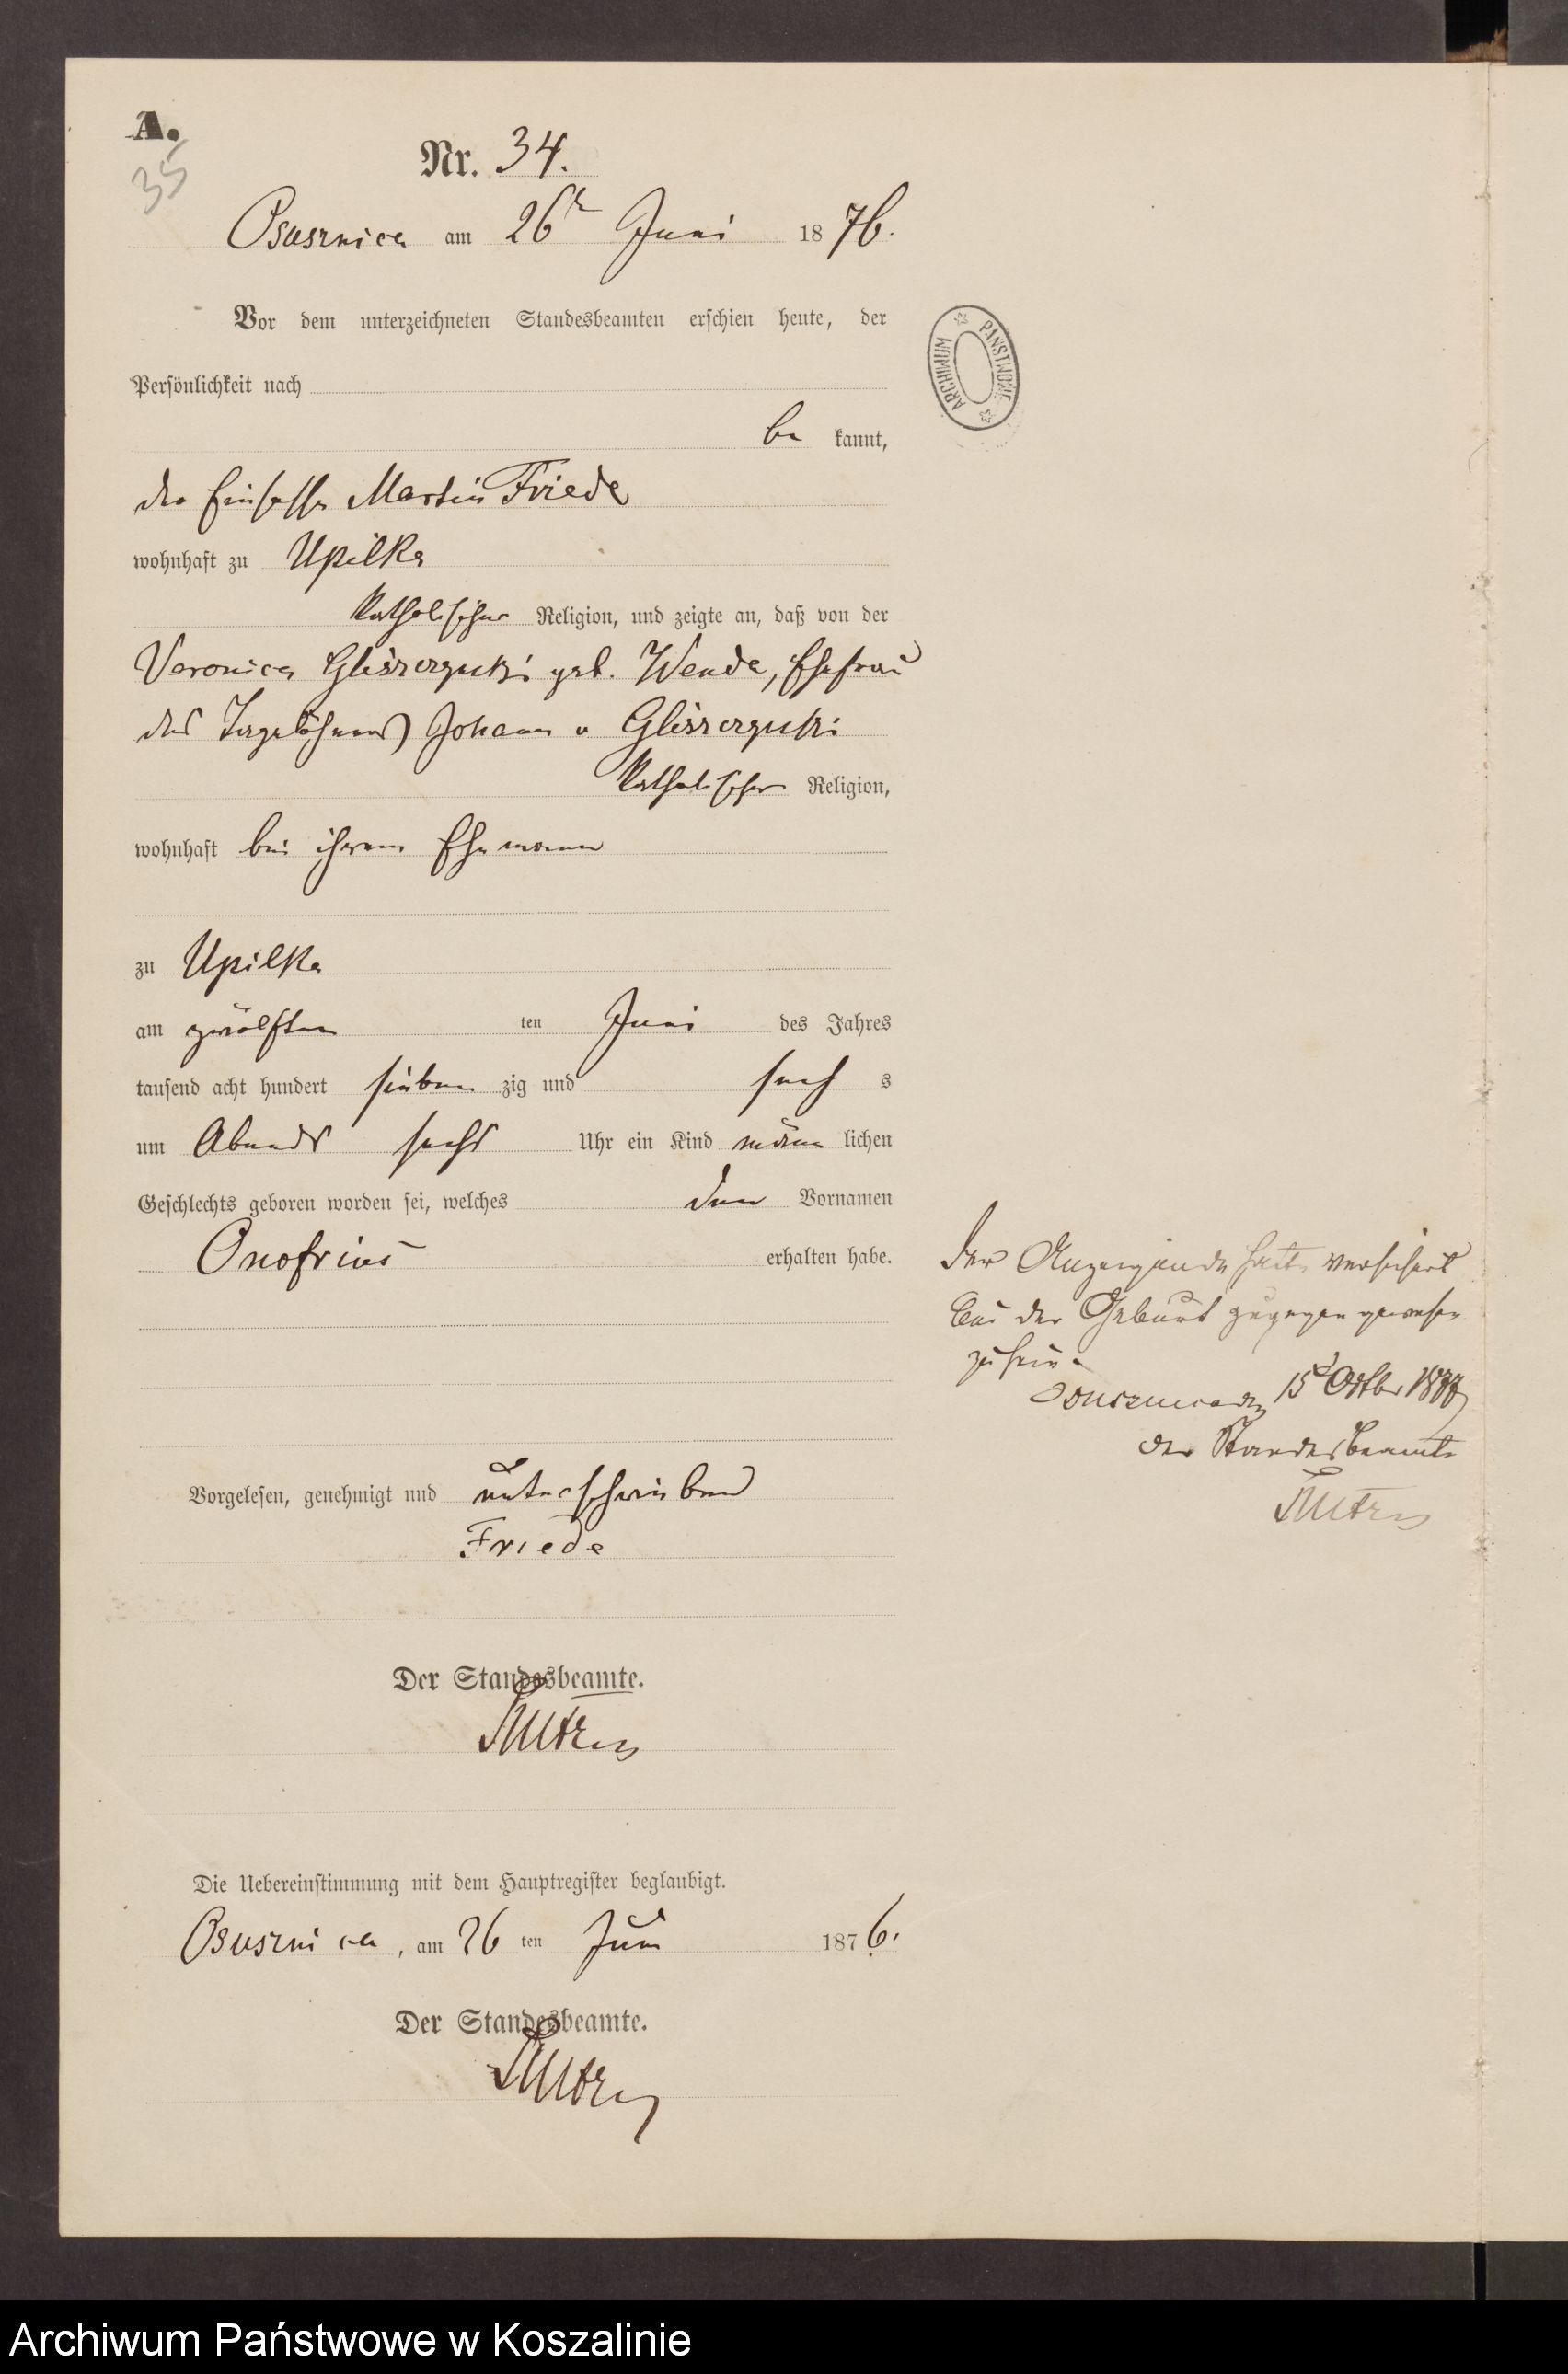 A.
35
Nr. 34.
Osusznica am 26t Juni 1876.
Vor dem unterzeichneten Standesbeamten erschien heute, der
Persönlichkeit nach
be kannt,
der Einsasse Martin Friede
wohnhaft zu Upilka
katholischer Religion, und zeigte an, daß von der
Veronica geb. Wenda, Ehefrau
des Tagelöhners Johann v
katholischer Religion,
wohnhaft bei ihrem Ehemann
zu Upilka
am zwölften ten Juni des Jahres
tausend acht hundert sieben zig und sech s
um Abends sechs Uhr ein Kind männ lichen
Geschlechts geboren worden sei, welches den Vornamen
Onofrius erhalten habe.
Vorgelesen, genehmigt und unterschrieben
Friede
Der Standesbeamte.
Die Uebereinstimmung mit dem Hauptregister beglaubigt.
Osusznica, am 26 ten Juni 1876.
Der Standesbeamte.
ARCHIWUM PAŃSTWOWE
Der Anzeigende hat versichert
bei der Geburt zugegen gewesen
zu sein.
Osusznica den 15t Octbr
der Standesbeamte
Archiwum Państwowe w Koszalinie